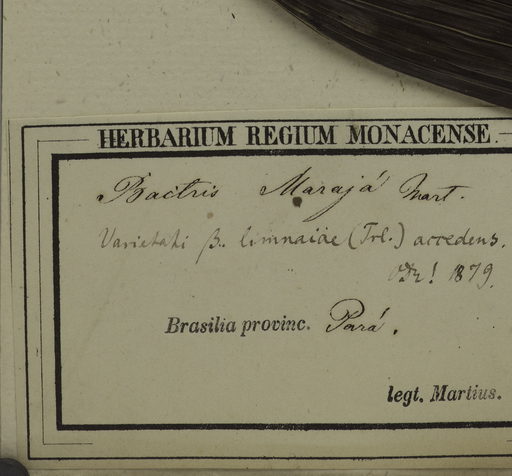 HERBARIUM REGIUM MONACENSE.
Bactris Marajá Mart.
Varietati β. limnaiae (Trl.) accedens.
! 1879.
Brasilia provinc. Pará.
legt. Martius.